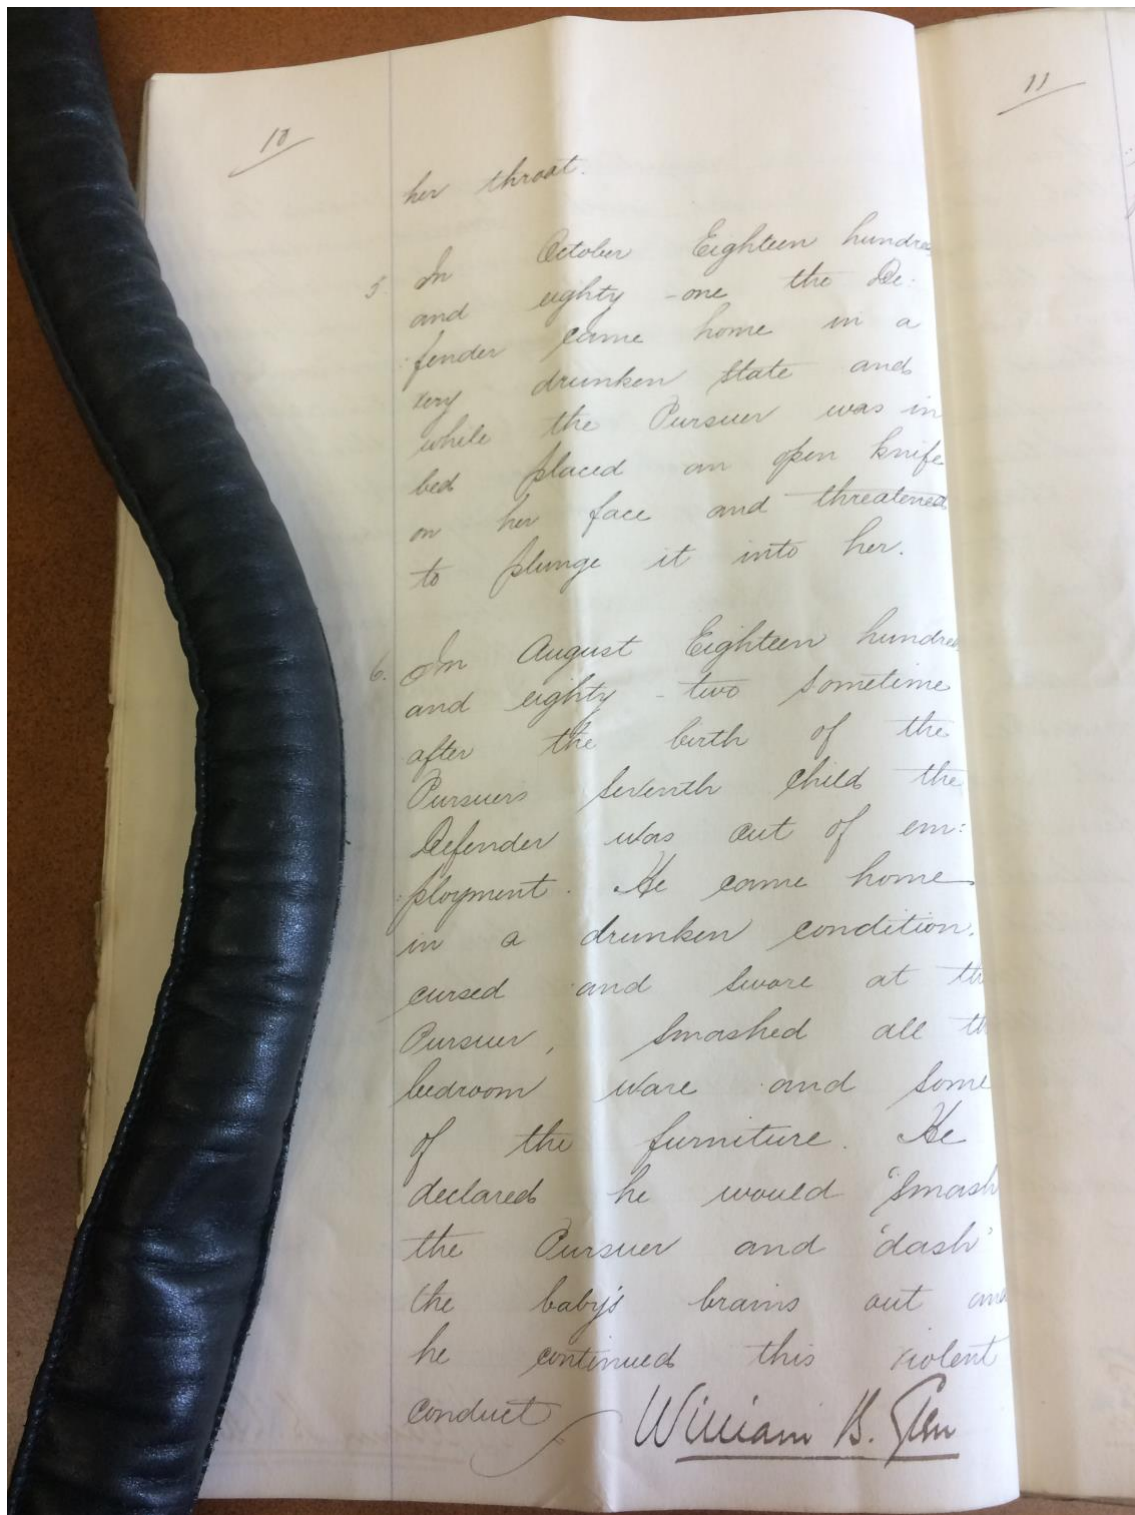 10
11
her throat.
5. In October Eighteen hundred
and eighty-one the De:
:fender came home in a
very drunken state and
while the Pursuer was in
bed placed an open knife
on her face and threatened
to plunge it into her.
6. In August Eighteen hundred
and eighty-two sometime
after the birth of the
Pursuers seventh child the
Defender was out of em:
:ployment. He came home
in a drunken condition.
cursed and swore at the
Pursuer, smashed all the
bedroom ware and some
of the furniture. He
declared he would "smash
the Pursuer and 'dash'
the baby's brains out and
he continued this violent
conduct
William B. Glen